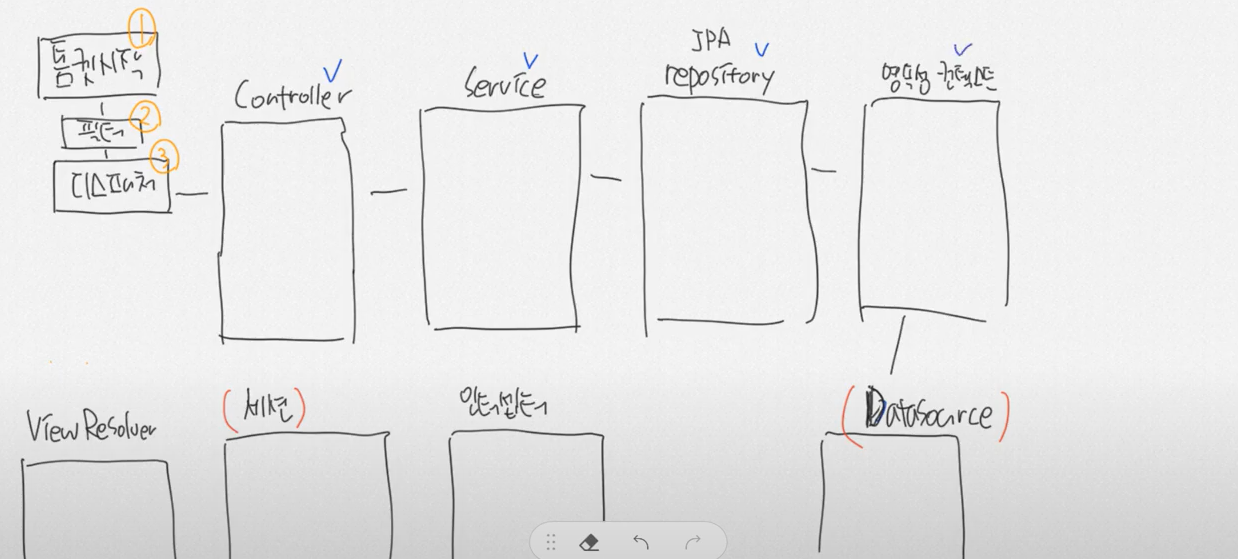 ①
톰캣시작
②
필터
③
디스패처
Controller
Service
JPA
repository
영속성 컨텍스트
ViewResolver
(세션)
인터셉터
(Datasource)